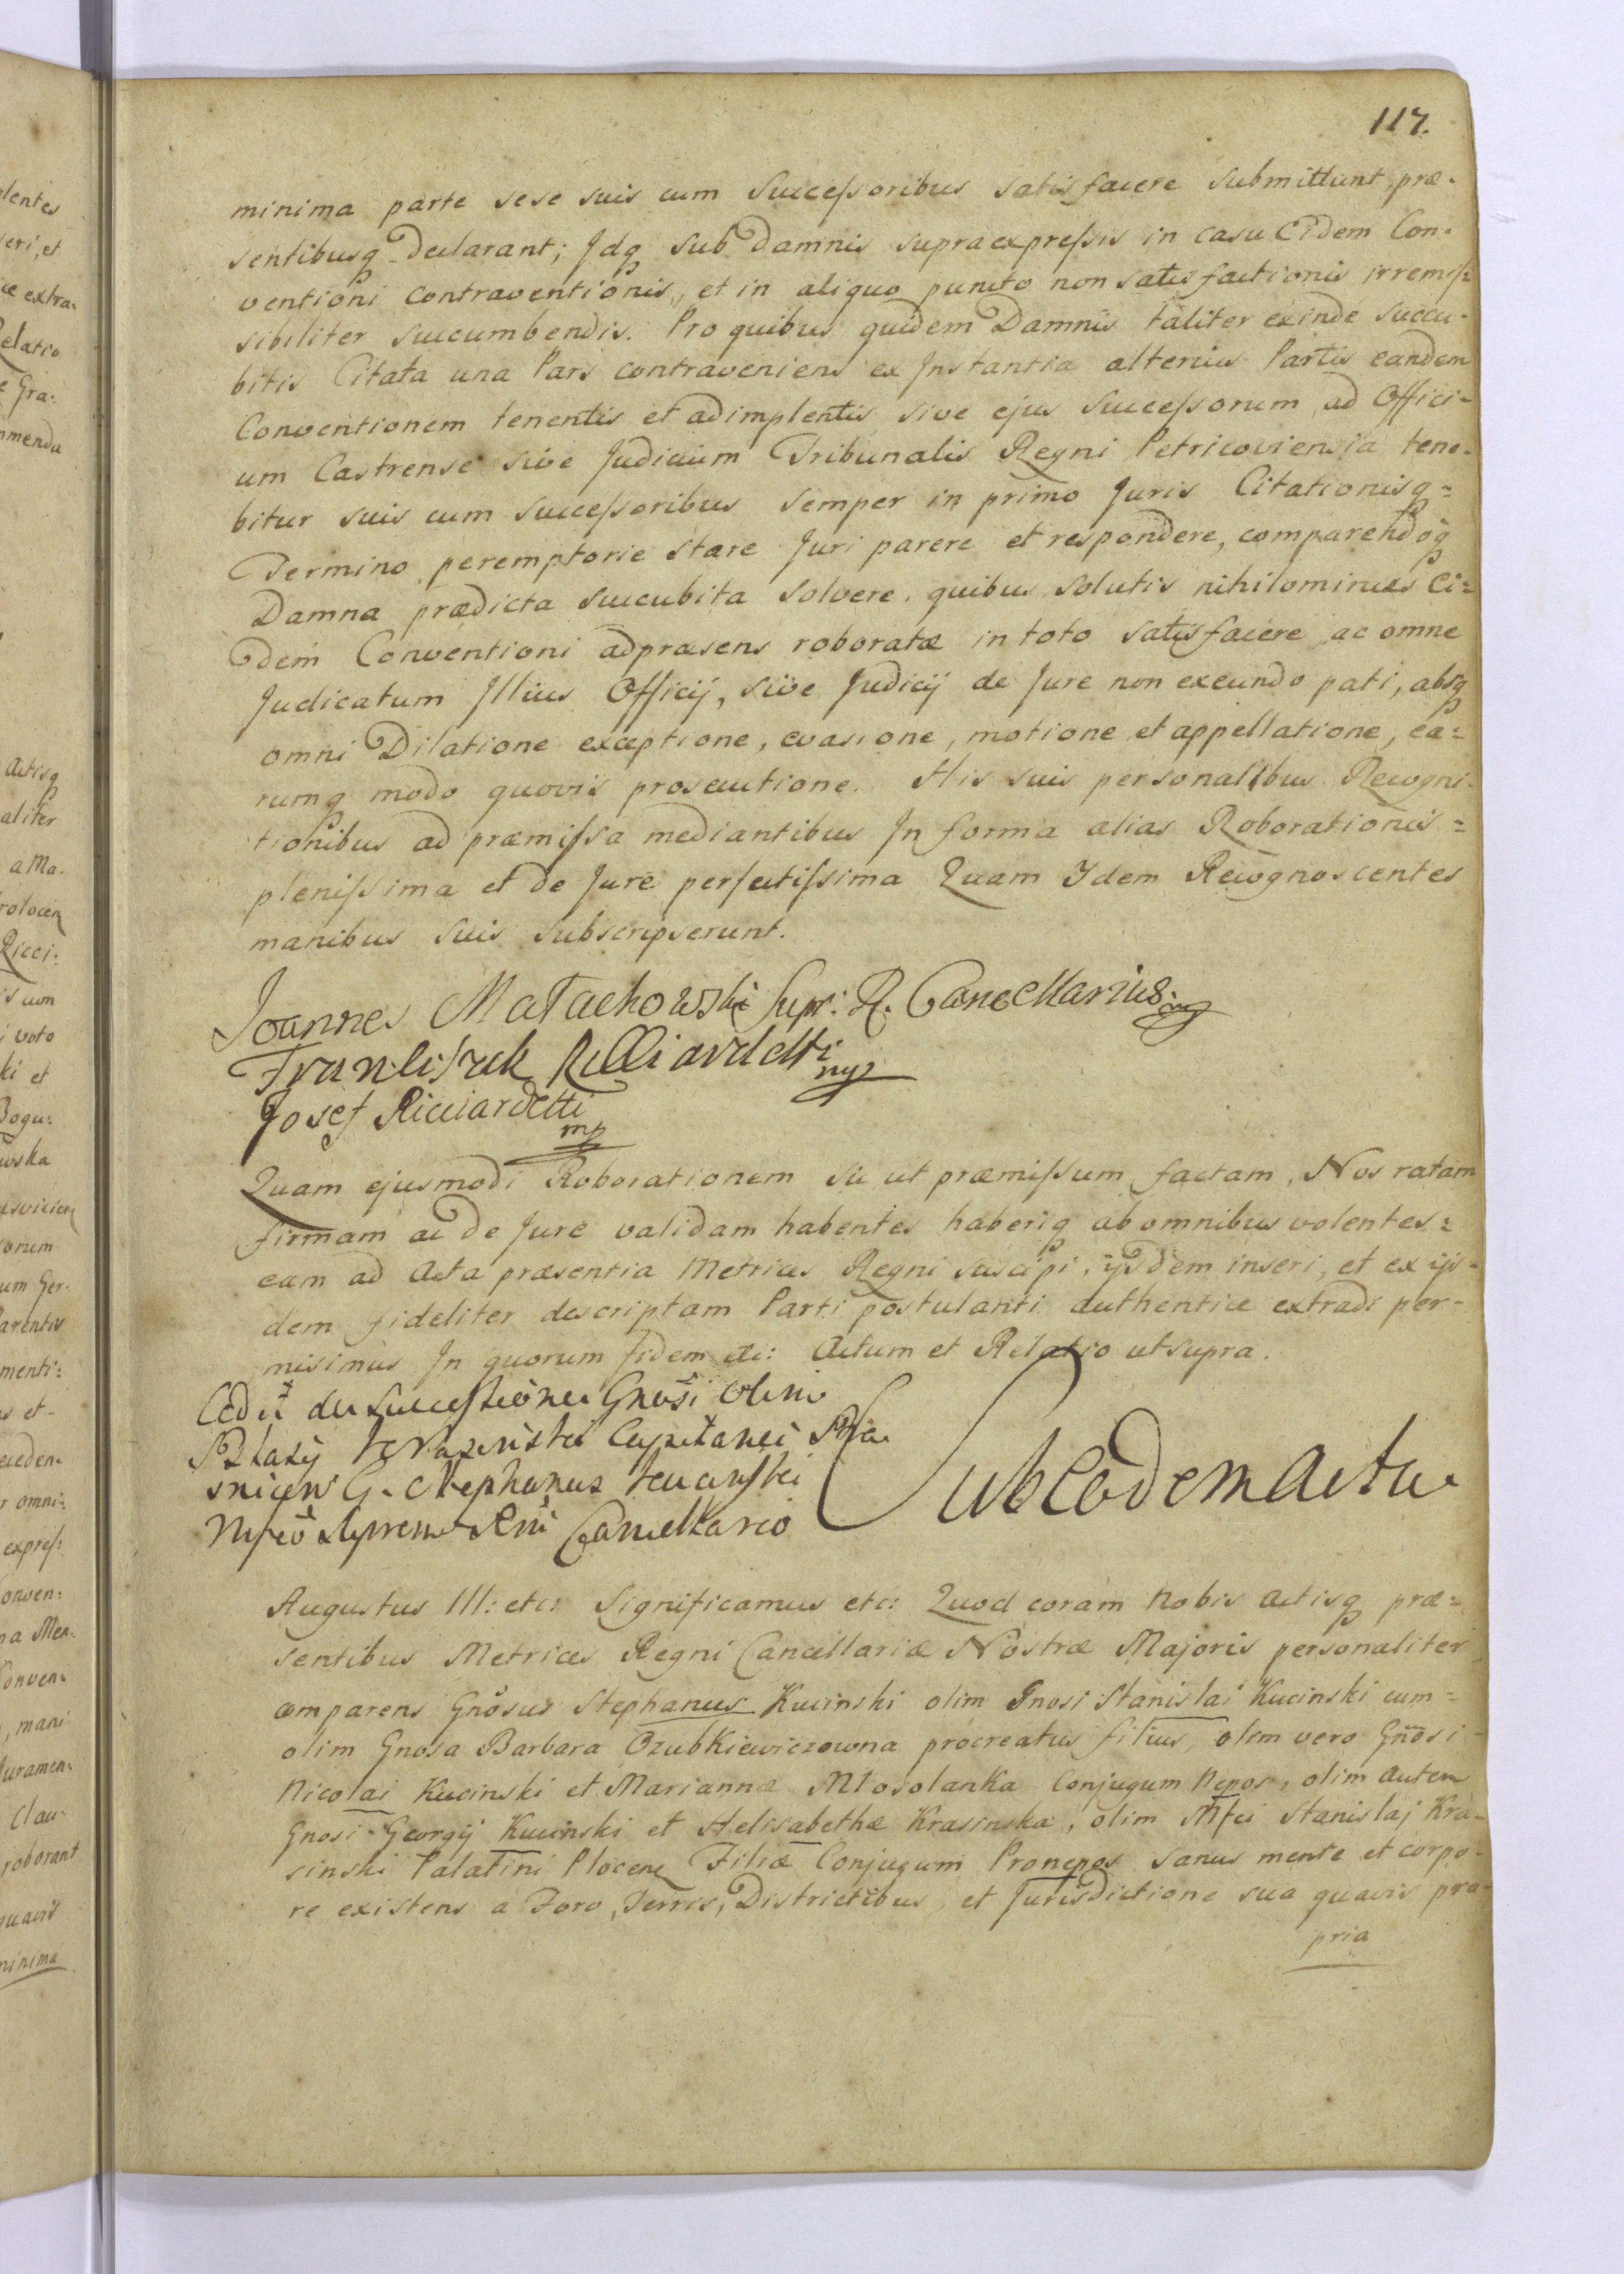 117.
minima parte sese suis cum Successoribus satisfacere submittunt, præ-
sentibusq declarant; Idq sub Damnis supraexpressis in casu Eidem Con-
ventioni contraventionis, et in aliquo puncto non satisfactionis irremis-
sibiliter succumbendis. Pro quibus quidem Damnis taliter exinde succu-
bitis Citata una Pars contraveniens ex Instantia alterius Partis eandem
Conventionem tenentis et adimplentis sive ejus Successorum, ad Offici-
um Castrense sive Judicium Tribunalis Regni Petricoviensia tene-
bitur suis cum successoribus semper in primo Juris Citationisq=
Termino peremptorie stare Juri parere et respondere, comparendoq
Damna prædicta succubita solvere, quibus solutis nihilominus Ei=
dem Conventioni adpræsens roboratæ in toto satisfacere ac omne
Judicatum Illius Officij, sive Judicij de Jure non exeundo pati, absq
omni Dilatione exceptione, evasione, motione et appellatione, ea=
rumq modo quovis prosecutione. His suis personalibus Recogni-
tionibus ad præmissa mediantibus In forma alias Roborationis=
plenissima et de Jure perfectissima Quam Idem Recognoscentes
manibus suis subscripserunt.
Joannes Małachowski Supr: R. Cancellarius mp
Franciszek Ricciardetti mp
Josef Ricciardetti
mp
Quam ejusmodi Roborationem sic ut præmissum factam, Nos ratam
firmam ac de Jure validam habentes haberiq ab omnibus volentes=
eam ad Acta præsentia Metrices Regni suscipi, ijsdem inseri, et ex ijs-
dem fideliter descriptam Parti postulanti authentice extradi per-
misimus In quorum fidem etc: Actum et Relatio ut supra.
Cedit de Successione Gnosi Olim
Blasij Capitanei
G. Stephanus
Cancellario
Sub Eodem Actu
Augustus III: etc: Significamus etc: Quod coram Nobis Actisq præ=
sentibus Metrices Regni Cancellariæ Nostræ Majoris personaliter
comparens Gnosus Stephanus Kucinski olim Gnosi Stanislai Kucinski cum=
olim Gnosa Barbara Ozubkiewiczowna procreatus filius, olim vero Gnosi
Nicolai Kucinski et Mariannæ Mlosolanka Conjugum Nepos, olim autem
Gnosi Georgij Kucinski et Helisabethæ Krasinska, olim Mfci Stanislaj Kra-
sinski Palatini Plocen Filiæ Conjugum Pronepos sanus mente et corpo-
re existens a Foro, Terris, Districtibus, et Jurisdictione sua quavis pro-
pria